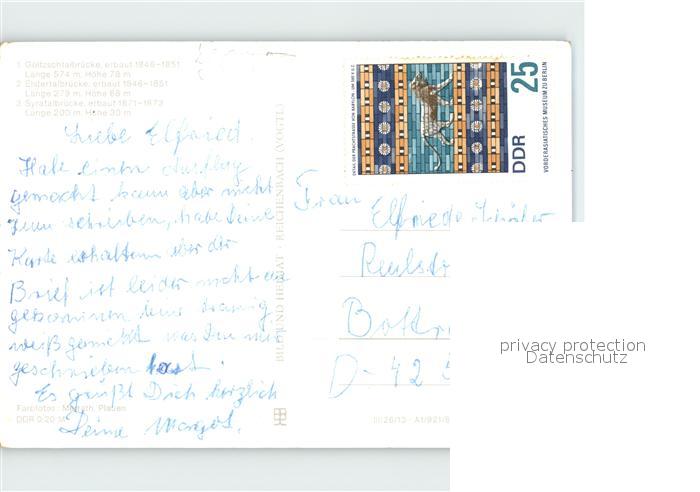 1 Göltzschtalbrücke, erbaut 1846–1851
Länge 574 m, Höhe 78 m
2 Elstertalbrücke, erbaut 1846–1851
Länge 279 m, Höhe 68 m
3 Syratalbrücke, erbaut 1871–1873
Länge 200 m, Höhe 30 m
Liebe Elfried.
Habe einen Ausflug
gemacht kann aber nicht
schreiben, habe Deine
Karte erhalten aber der
Brief ist leider nicht
gekommen bin traurig
weiß gemeckt was Du mir
geschrieben hast.
Es grüßt Dich herzlich
Deine Margot.
Farbfotos: Plauen
DDR 0,20 M
BILD UND HEIMAT · REICHENBACH (VOGTL)
DETAIL DER PRACHTSTRASSE VON BABYLON · UM 580 V. U. Z.
25
DDR
VORDERASIATISCHES MUSEUM ZU BERLIN
Frau
Elfriede
Realstr
Bottr
D-42
III/26/13 · A1/921/
privacy protection
Datenschutz